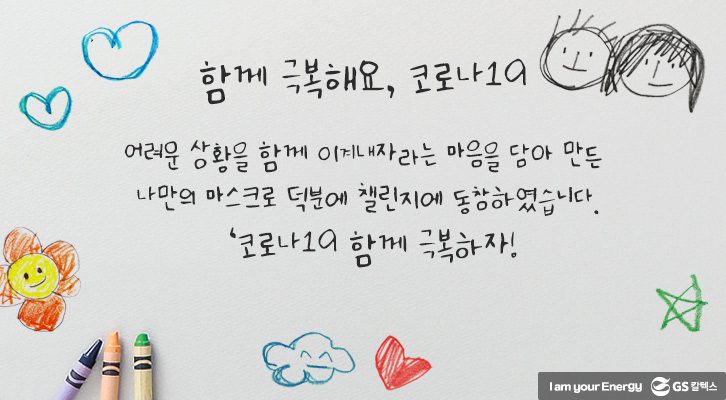 함께 극복해요, 코로나19
어려운 상황을 함께 이겨내자라는 마음을 담아 만든
나만의 마스크로 덕분에 챌린지에 동참하였습니다.
‘코로나19 함께 극복하자!
I am your Energy GS칼텍스